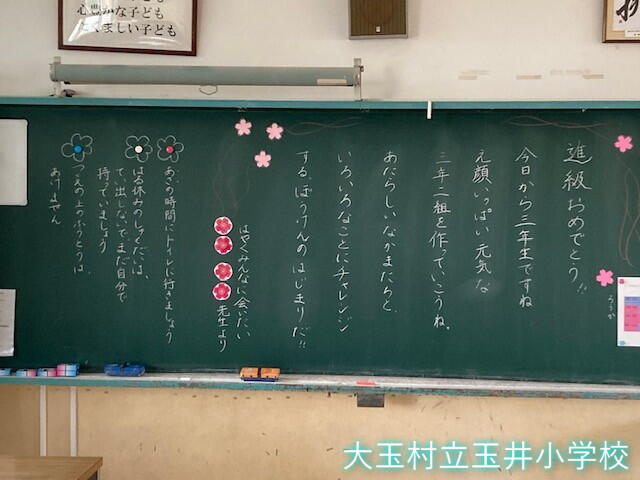 心豊かな子ども
たくましい子ども
進級おめでとう!!
今日から三年生ですね
元顔いっぱい元気な
三年二組を作っていこうね。
あたらしいなかまたちと、
いろいろなことにチャレンジ
する。ぼうけんのはじまりだ!!
はやくみんなに会いたい
先生より
あさの時間にトイレに行きましょう
はる休みのしゅくだいは、
て、出しないでまだ自分で
持っていましょう
つくえの上のふうとうは、
あけません
ろうか
大玉村立玉井小学校